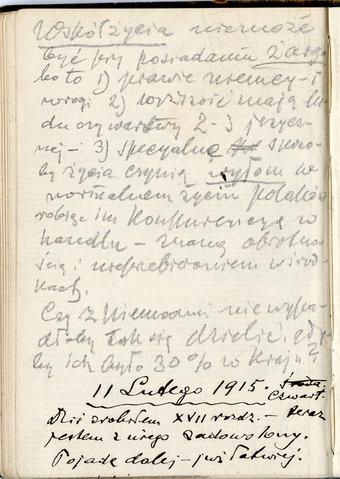 Współżycia niemoże
być przy posiadaniu Żarg
bo to 1) prawie niemcy – i
wrogi 2) większość mają lu
du czy warstwy 2-3 języcz-
nej – 3) specyalne sposo-
by życia czynią wyłom w
normalnem życiu polaków
robiąc im konkurencyę w
handlu – znaną obrotno-
ścią i nieprzebieraniem w środ-
kach.
Czy z Niemcami nie wypa-
dłoby tak się dzielić, gdy
by ich było 30% w kraju?
11 Lutego 1915. środa. czwart.
Dziś zrobiłem XVII rozdz. – teraz
jestem z niego zadowolony.
Pojadę dalej – już łatwiej.